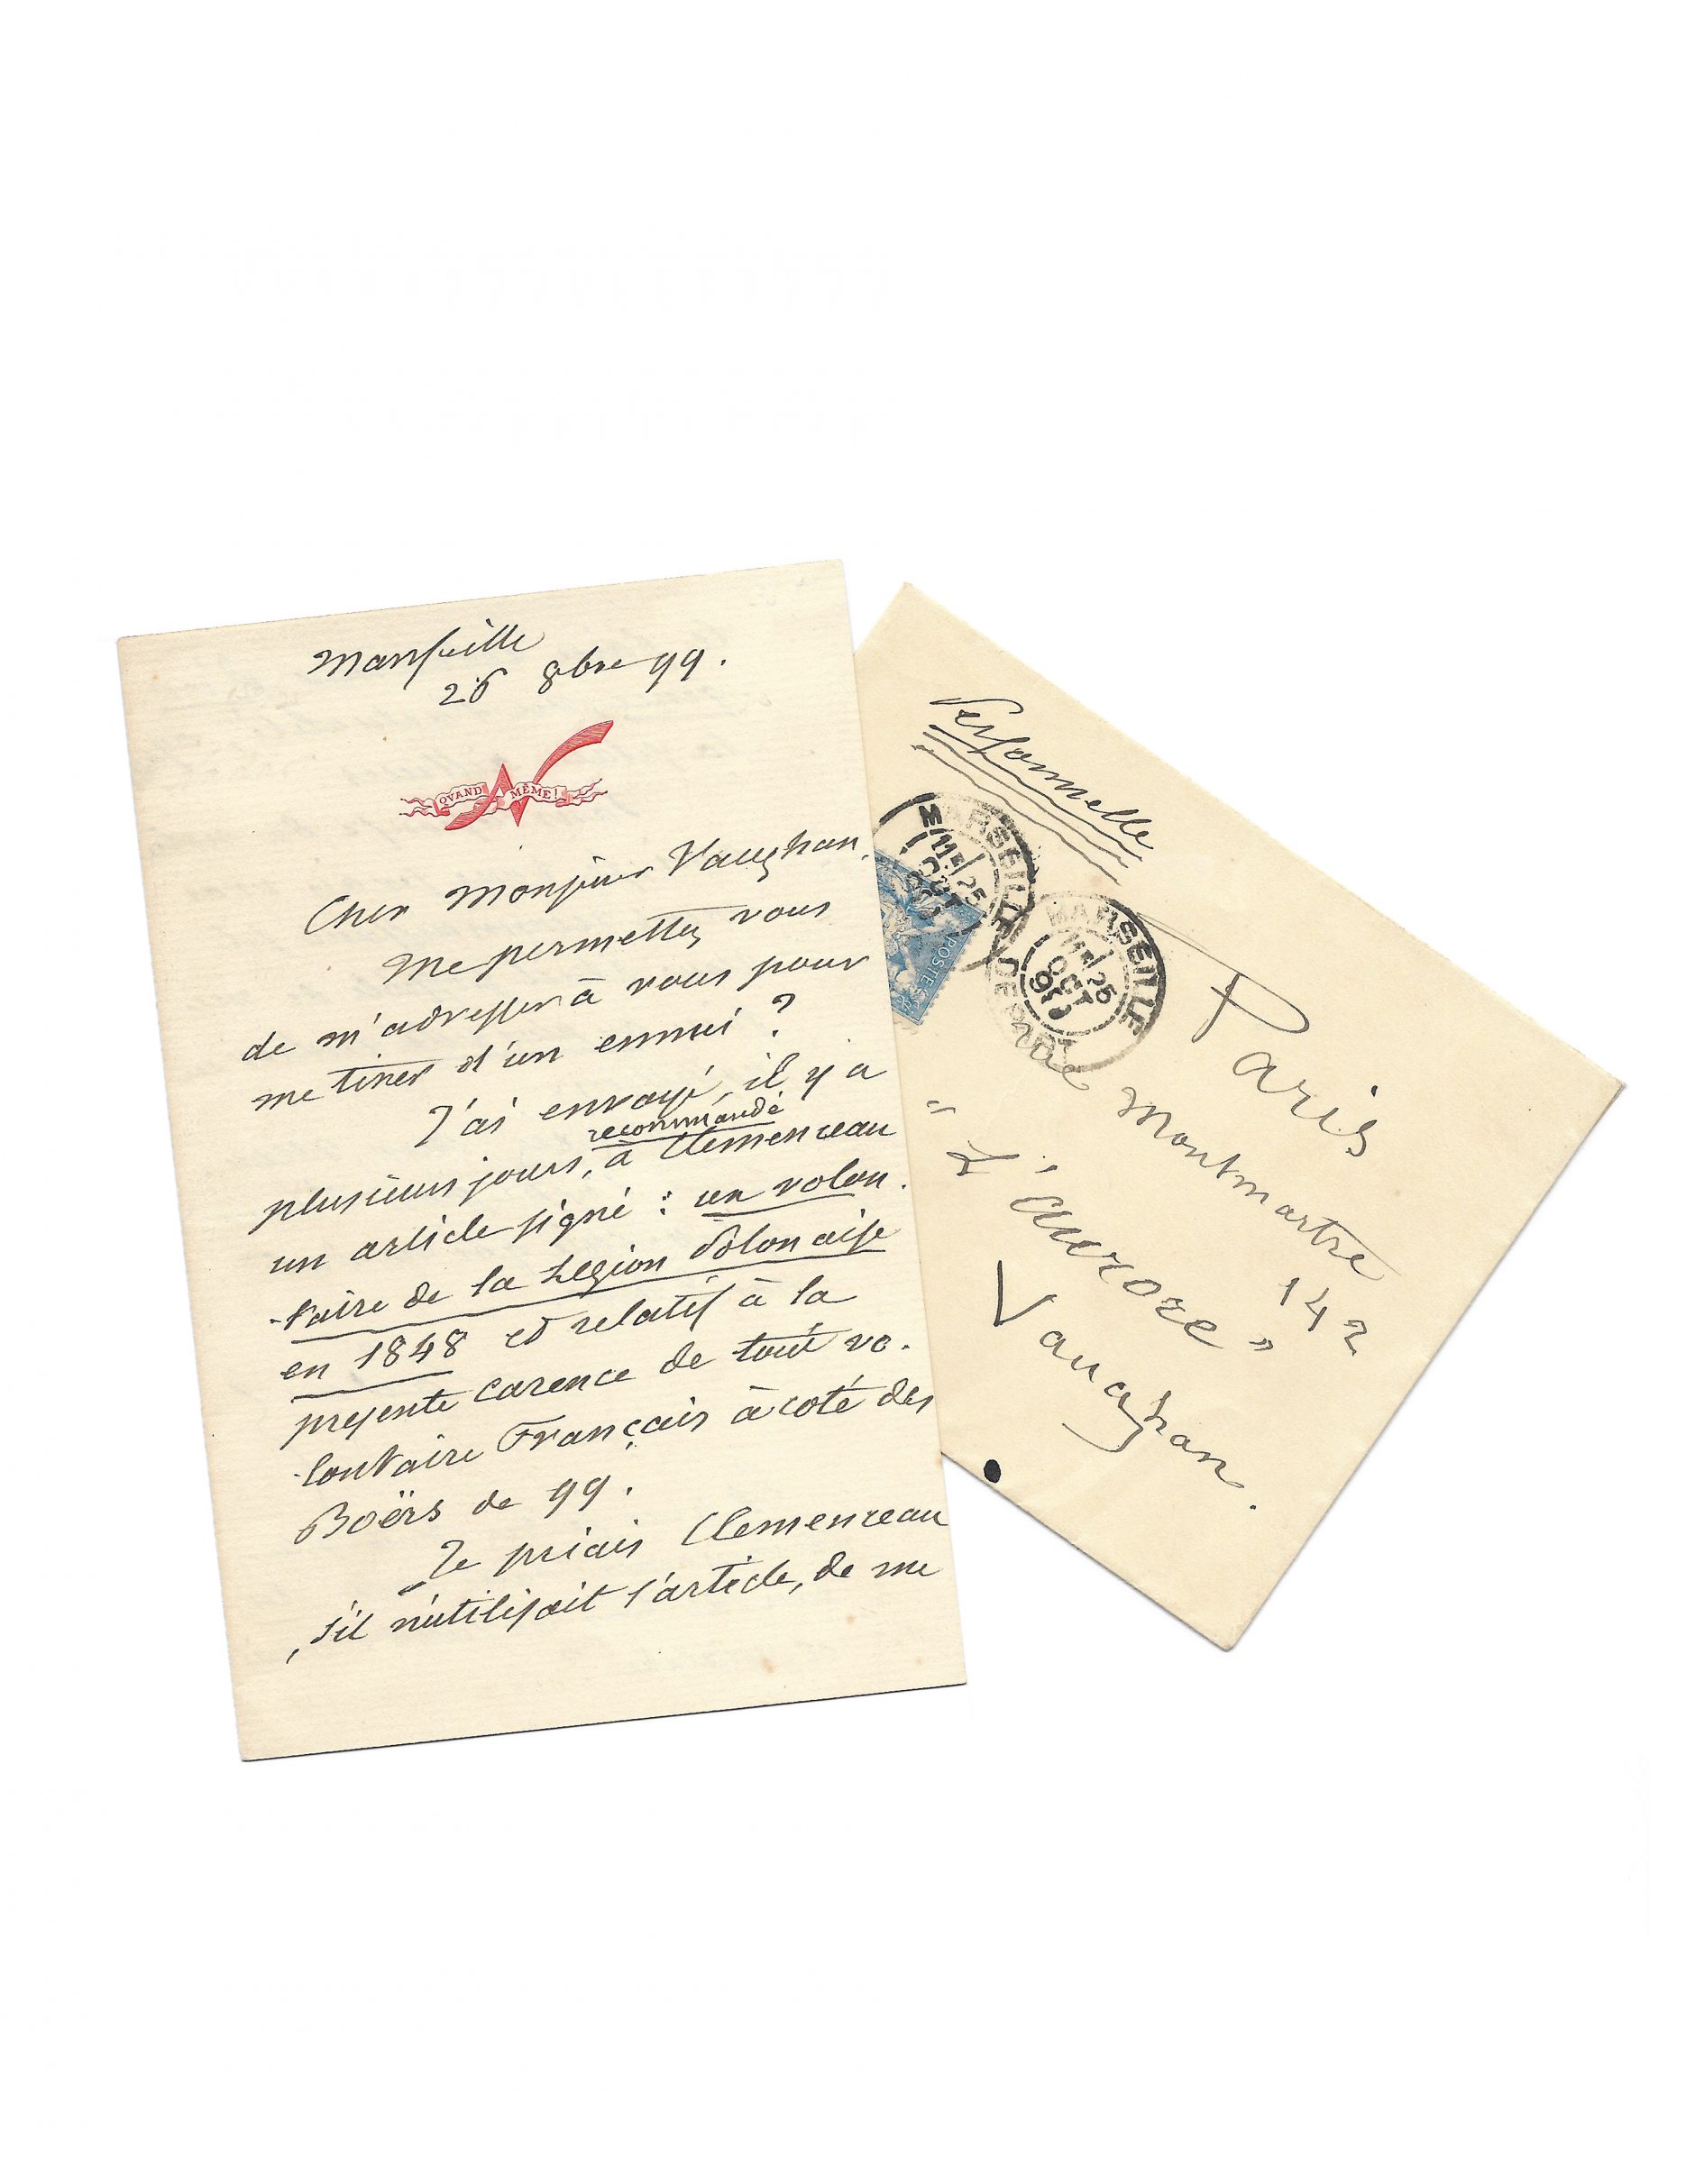 Marseille
26 8bre 99.
QVAND MÊME!
Cher Monsieur Vaughan,
Me permettez vous
de m'adresser à vous pour
me tirer d'un ennui ?
J'ai envoyé, il y a
recommandé
plusieurs jours, à Clemenceau
un article signé : un volon.
-taire de la Légion Polonaise
en 1848 et relatif à la
présente carence de tout vo.
-lontaire Français à coté des
Boërs de 99.
Je priais Clemenceau
, s'il n'utilisait l'article, de me
Personnelle
MARSEILLE
25
OCT
MARSEILLE
25
OCT
POSTES
Paris
Rue Montmartre 142
"L'Aurore"
Vaughan.